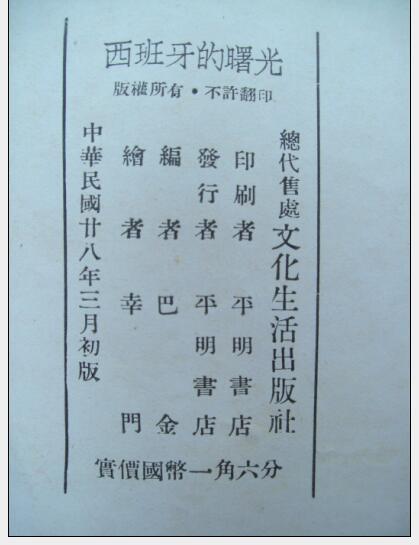 西班牙的曙光
版權所有・不許翻印
總代售處文化生活出版社
印刷者平明書店
發行者平明書店
編者巴金
繪者幸門
中華民國廿八年三月初版
實價國幣一角六分